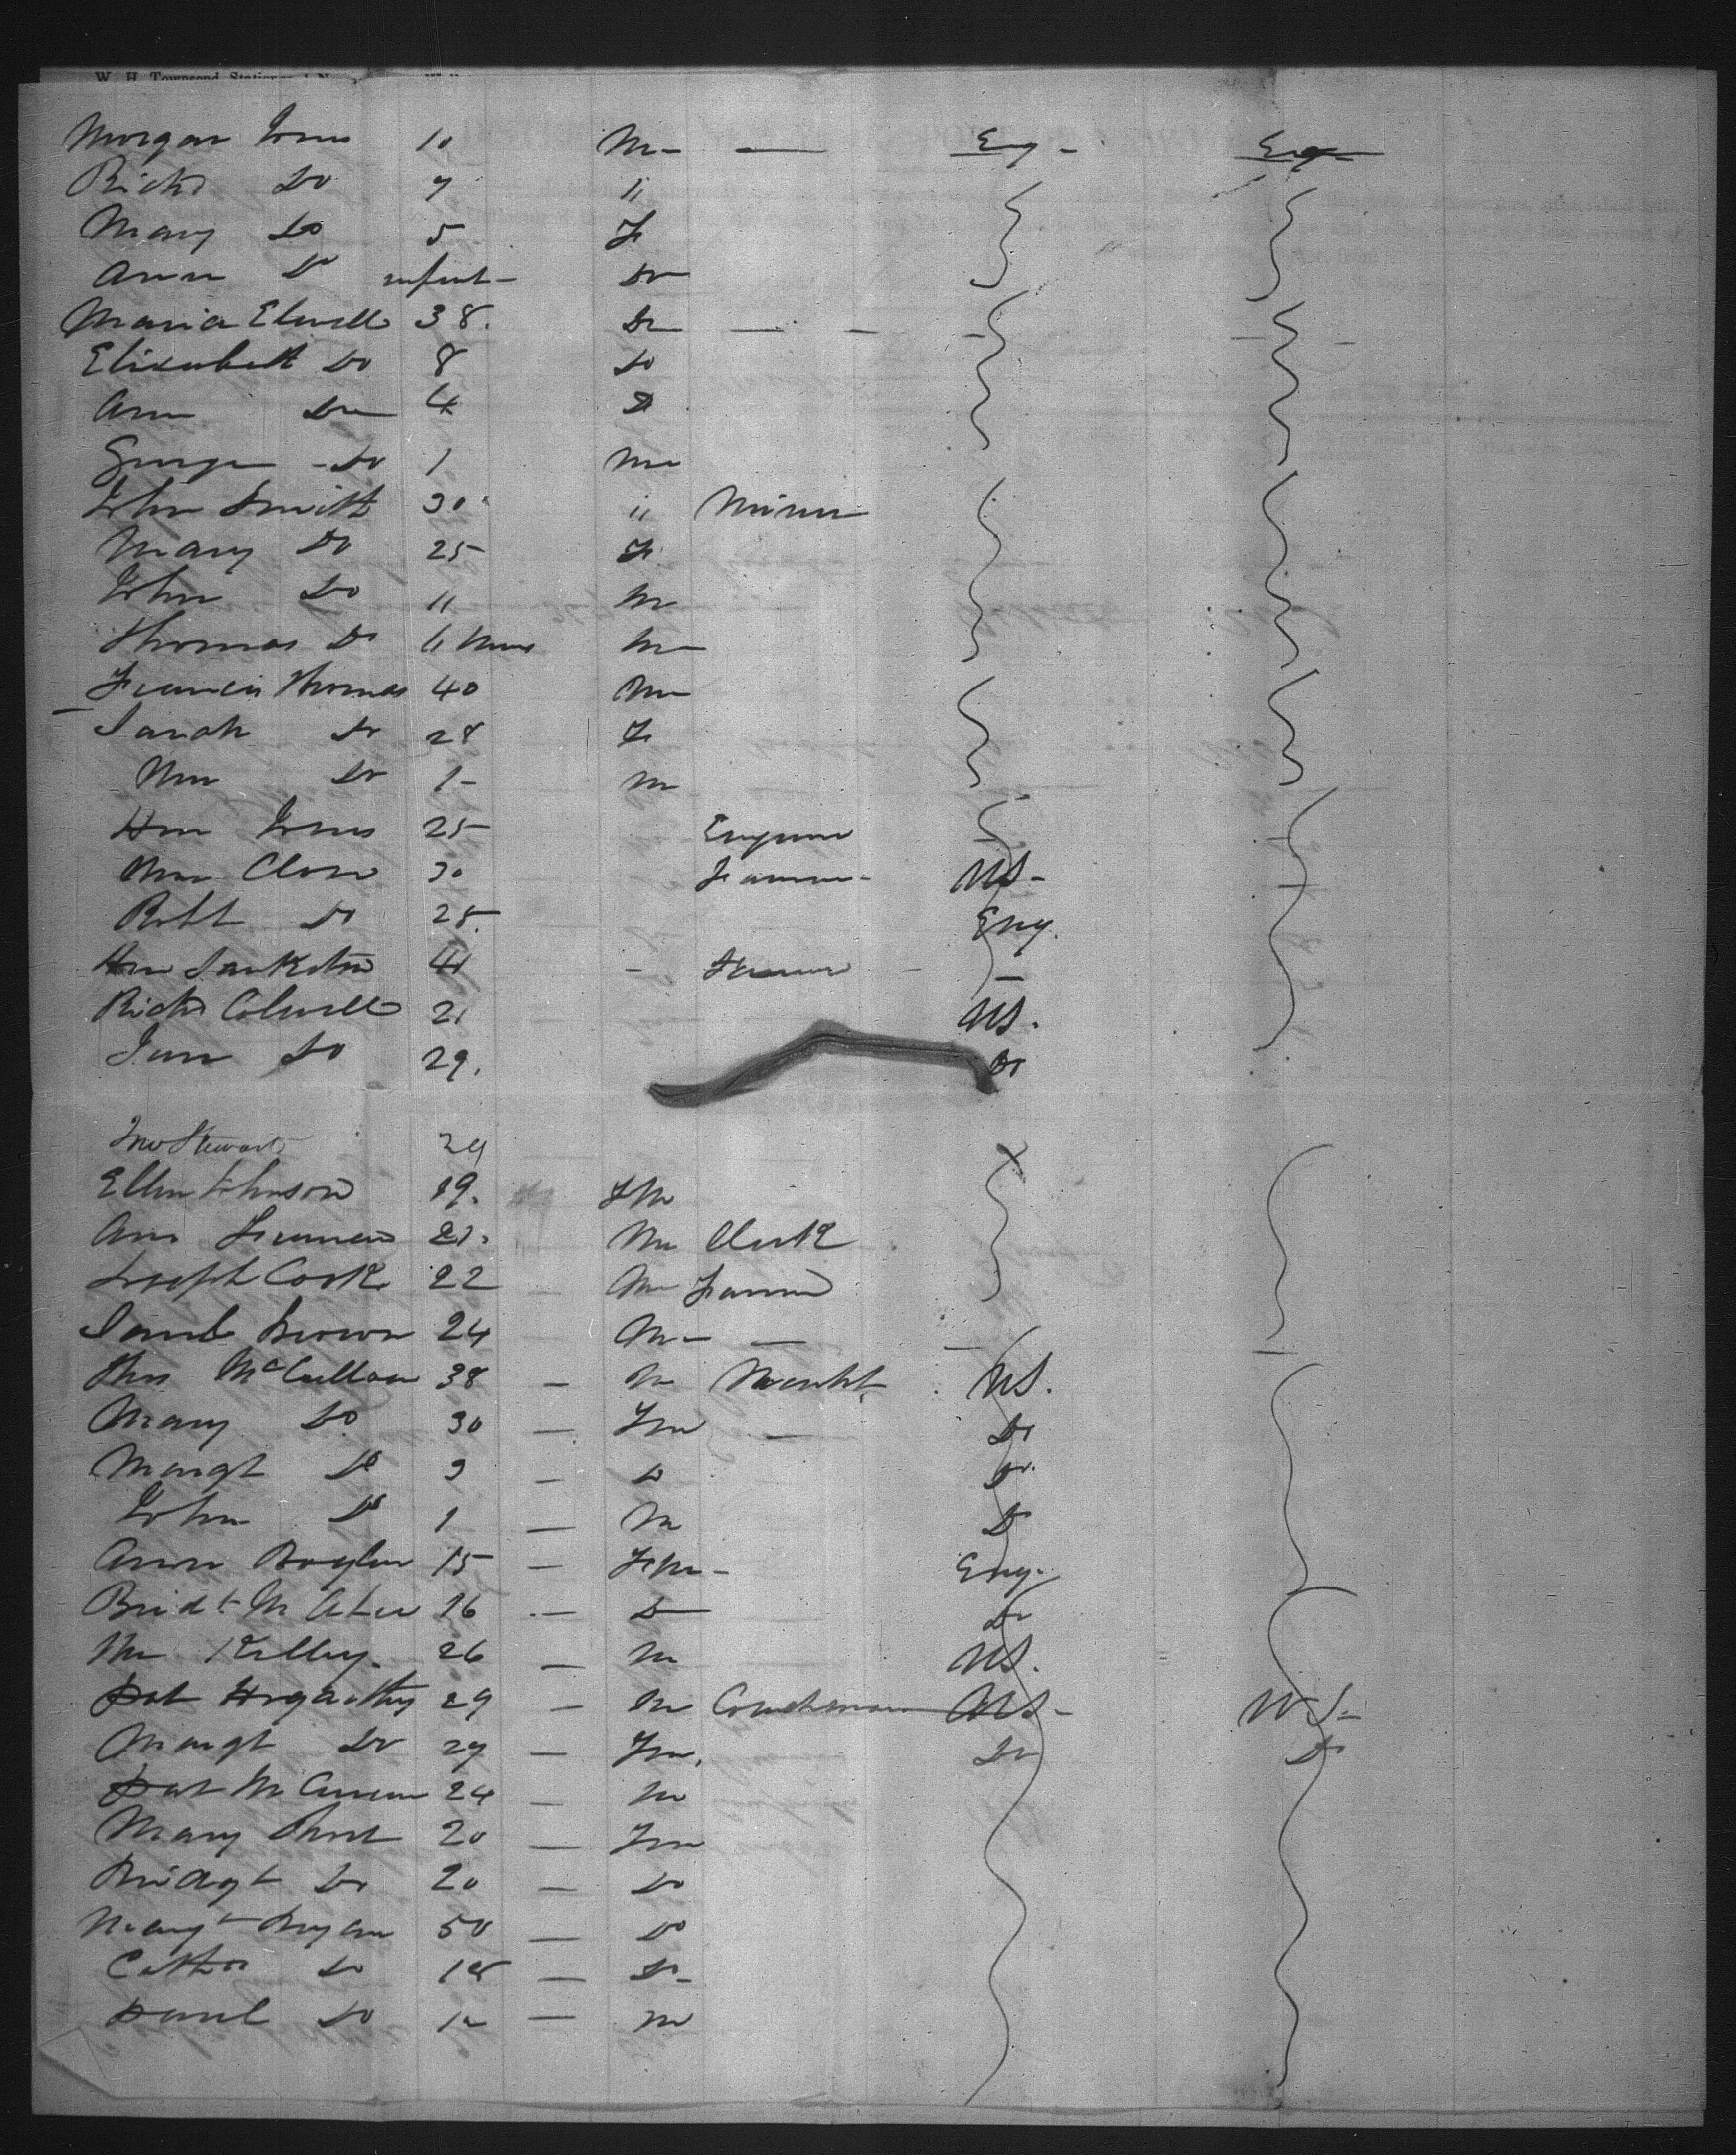 W. H. Townsend Stationer
Morgan Jones 10 M - — Eng - Eng
Richd Do 7 "
Mary Do 5 F
Ann Do infant - Do
Maria Elwell 38. Do — —
Elizabeth Do 8 Do
Ann Do 4 Do
George - Do 1 M
John Smith 30 " Miner
Mary Do 25 F
John Do 11 M
Thomas Do 6 Mons M
Francis Thomas 40 M
Sarah Do 28 F
Wm Do 1 - M
Hm Jones 25
Wm Close 30 Farmer - US -
Robt Do 25. Eng.
Hm 41 -
Richd Colwell 21 US.
Jane Do 29. Do
Jno Stewart 29
Ellen Johnson 19. Fm
Ann Freeman 21. M Clerk
Joseph Cook 22 M Farmer
Saml Brown 24 M - —
Thos McCullow 38 — M Mercht US.
Mary Do 30 — Fm — Do
Margt Do 3 — Do Do
John Do 1 — M Do
Ann Boylan 15 — Fm - Eng.
Bridt. 16 — Do Do
Wm Kelley. 26 — M US.
Pat Hogarthy 29 — M Coachman US - U.S -
Margt Do 27 — Fm. Do Do
Pat 24 — M
Mary 20 — Fm
Bridgt Do 20 — Do
Margt Bryan 50 — Do
Cath Do 18 — Do -
Do — M